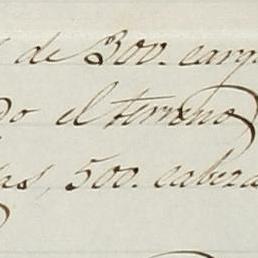 de 300. carg
do el terreno
as, 500. cabeza